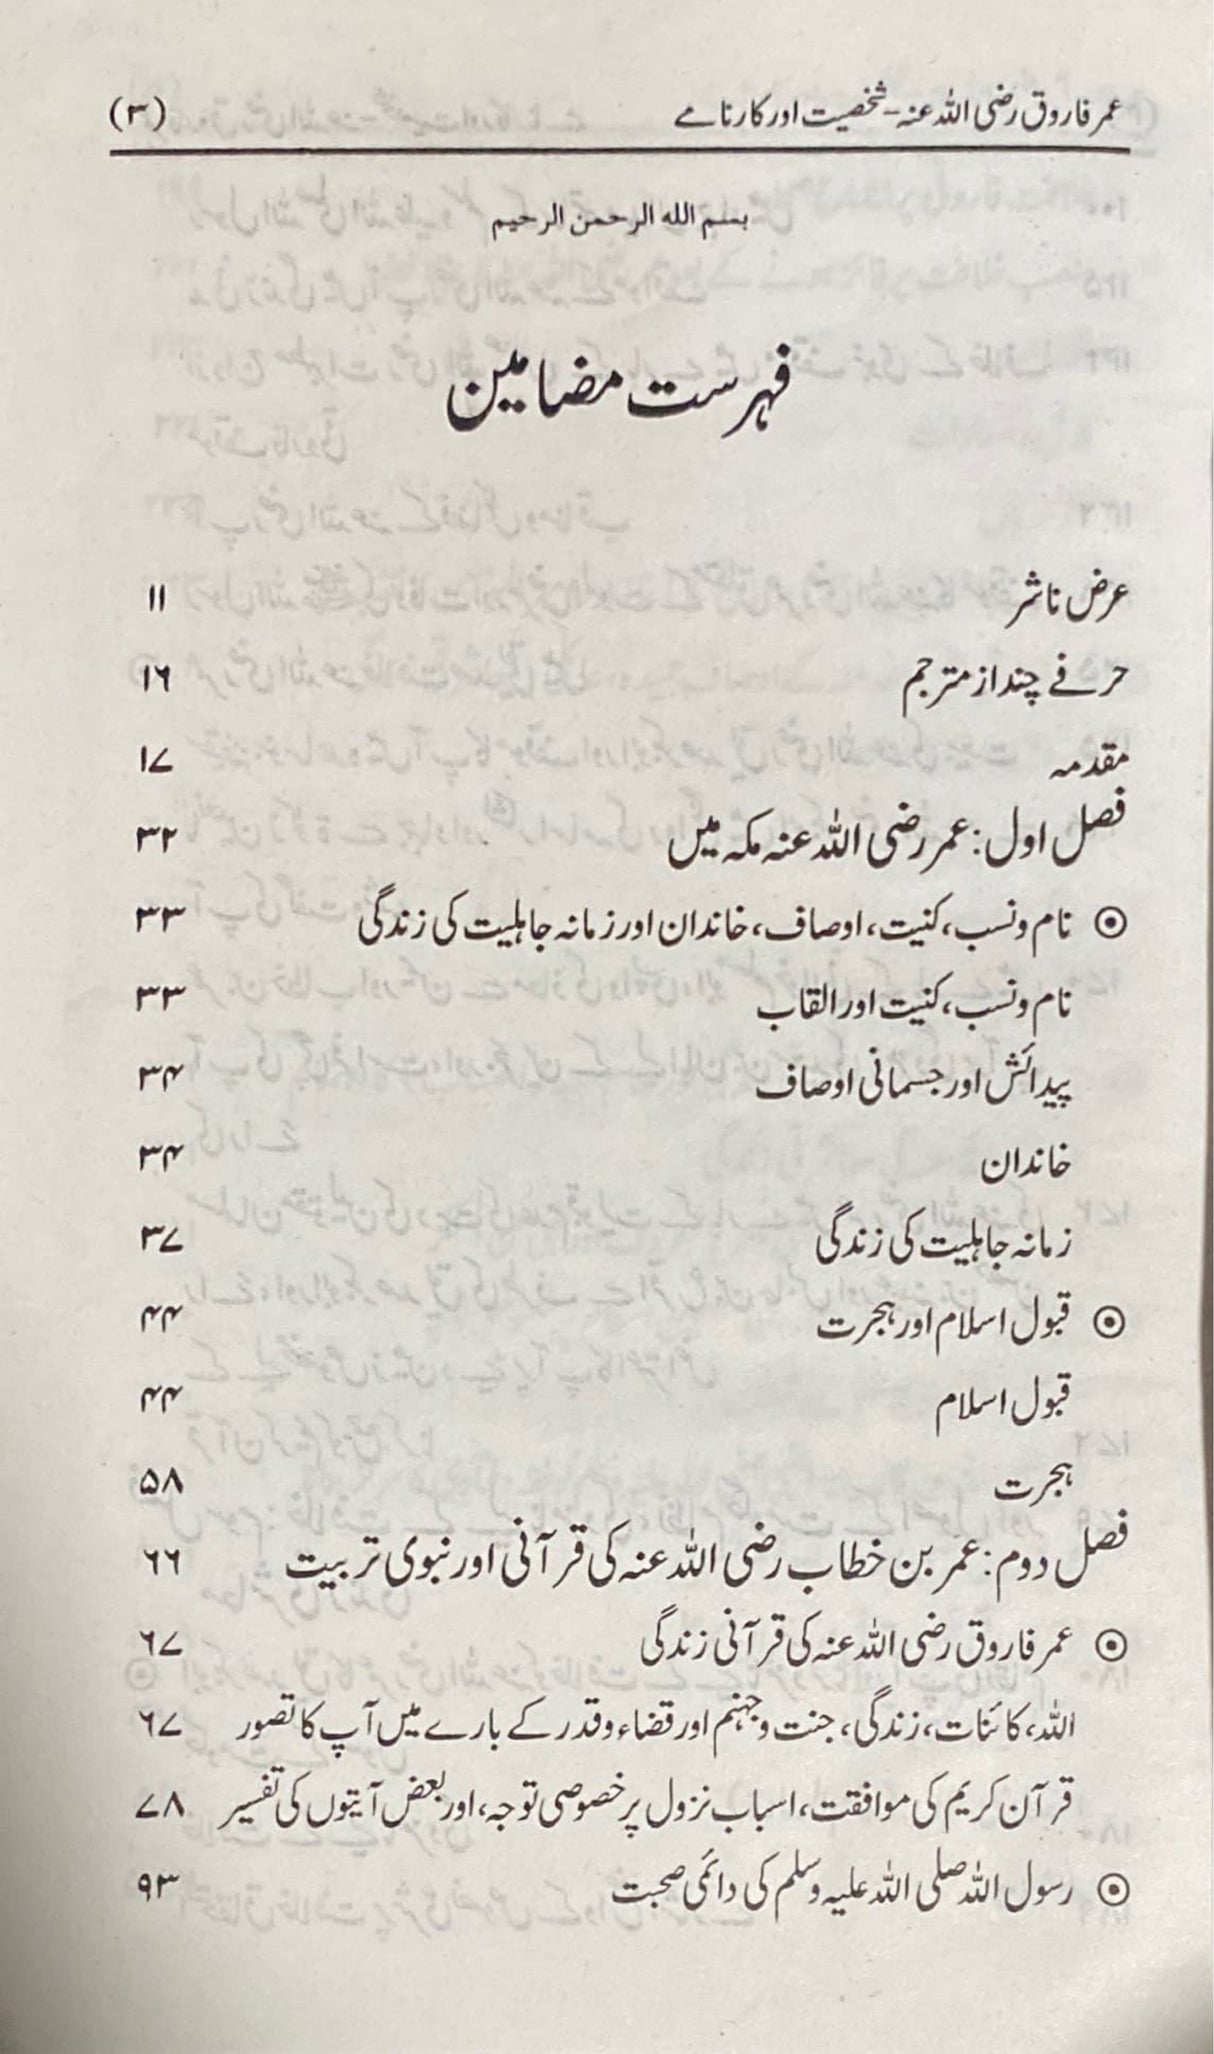 عمر فاروق رضی اللہ عنہ - شخصیت اور کارنامے (۳)
بسم الله الرحمن الرحيم
فہرست مضامین
عرض ناشر ۱۱
حرفے چند از مترجم ۱۶
مقدمہ ۱۷
فصل اول: عمر رضی اللہ عنہ مکہ میں ۳۲
⊙ نام و نسب، کنیت، اوصاف، خاندان اور زمانہ جاہلیت کی زندگی ۳۳
نام و نسب، کنیت اور القاب ۳۳
پیدائش اور جسمانی اوصاف ۳۴
خاندان ۳۴
زمانہ جاہلیت کی زندگی ۳۷
⊙ قبول اسلام اور ہجرت ۴۴
قبول اسلام ۴۴
ہجرت ۵۸
فصل دوم: عمر بن خطاب رضی اللہ عنہ کی قرآنی اور نبوی تربیت ۶۶
⊙ عمر فاروق رضی اللہ عنہ کی قرآنی زندگی ۶۷
اللہ، کائنات، زندگی، جنت و جہنم اور قضاء و قدر کے بارے میں آپ کا تصور ۶۷
قرآن کریم کی موافقت، اسباب نزول پر خصوصی توجہ، اور بعض آیتوں کی تفسیر ۷۸
⊙ رسول اللہ صلی اللہ علیہ وسلم کی دائمی صحبت ۹۳